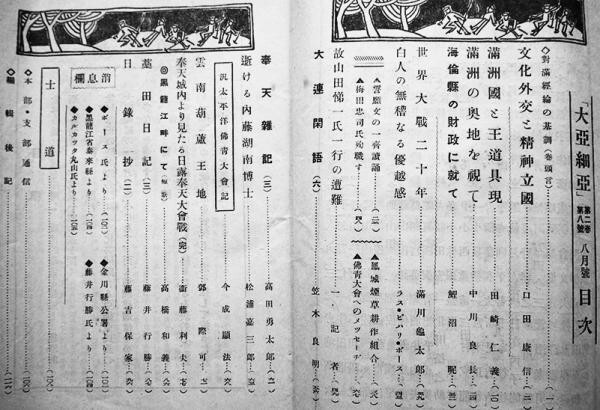 「大亞細亞」 第二卷 第八號 八月號 目次
◇對滿經論の基調(卷頭言)
文化外交と精神立國 口田康信
滿洲國と王道具現 田崎仁義
滿洲の奥地を視て 中川良長
海倫縣の財政に就て 鯉沼昵
世界大戰二十年 滿川龜太郎
白人の無稽なる優越感 ラス・ビハリ・ボース
▲雲顯文の一齊讀誦
▲鳳城煙草耕作組合
▲梅田忠司氏殉職す
▲佛靑大會へのメッセーヂ
故山田悌一氏一行の遭難 一記者
大連閑語(六) 笠木良明
奉天雜記(二) 高田勇太郎
逝ける内藤湖南博士 松浦嘉三郎
汎太平洋佛靑大會記 今成顯法
雲南葫蘆王地 郭際可
奉天城内より見たる日露奉天大會戰(完) 衞藤利夫
◎黑龍江畔にて 高橋和義
藁田日記(三) 藤井行勝
日錄抄(二) 藤吉保家
消息欄
◆ボース氏より
◆金川縣公署より
◆黑龍江省泰來縣より
◆藤井行勝氏より
◆カルカッタ丸山氏より
士道
◇本部・支部通信
◇編輯後記